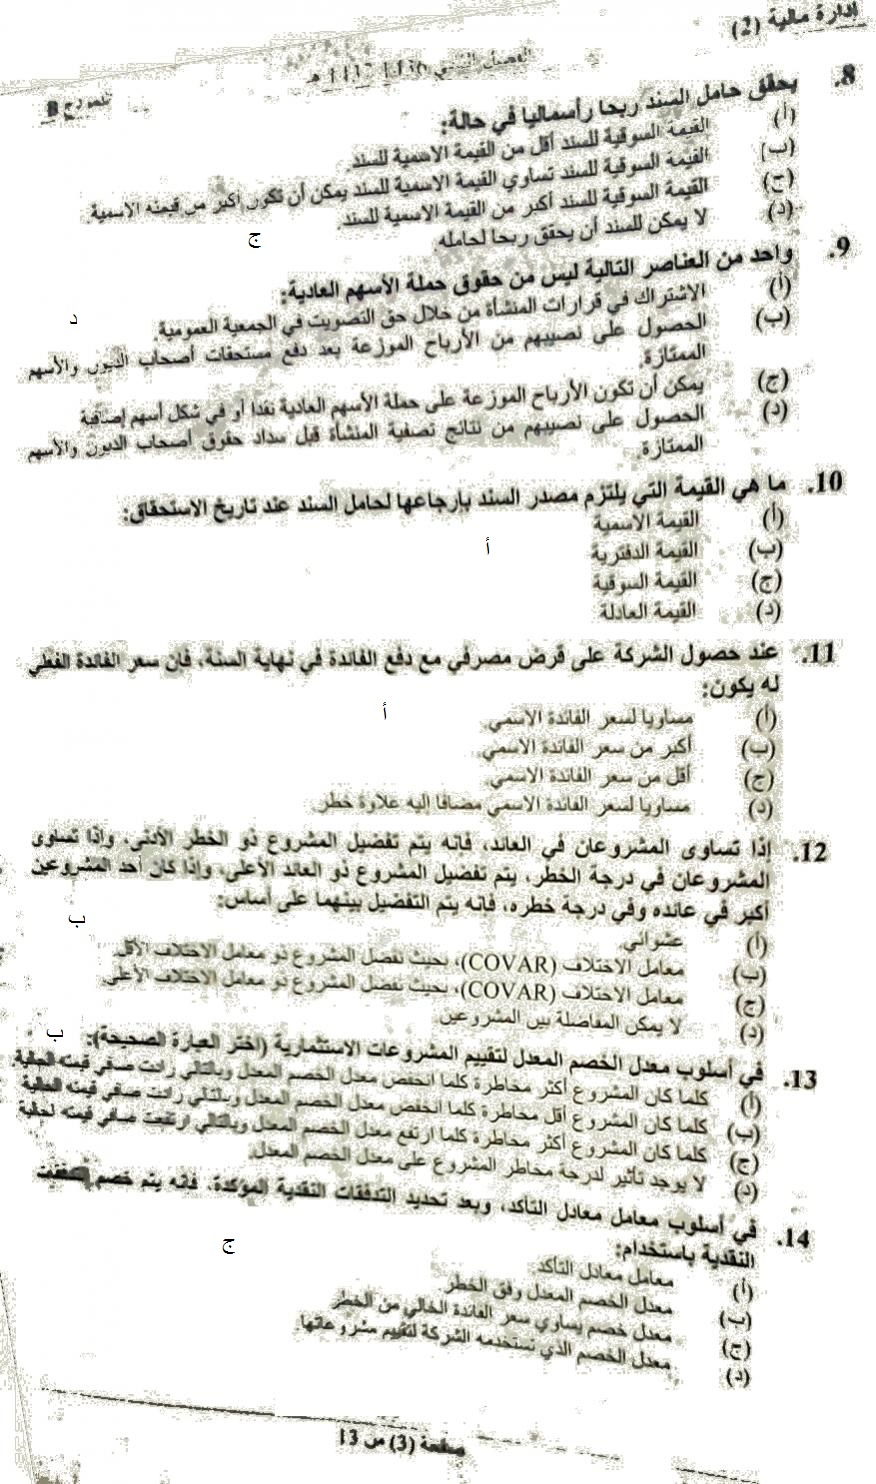 إدارة مالية (2)
الفصل الثاني 1436 1437 هـ
النموذج B
8. يحقق حامل السند ربحا رأسماليا في حالة:
(أ) القيمة السوقية للسند أقل من القيمة الاسمية للسند.
(ب) القيمة السوقية للسند تساوي القيمة الاسمية للسند يمكن أن تكون أكبر من قيمته الاسمية.
(ج) القيمة السوقية للسند أكبر من القيمة الاسمية للسند.
(د) لا يمكن للسند أن يحقق ربحا لحامله.
ج
9. واحد من العناصر التالية ليس من حقوق حملة الأسهم العادية:
(أ) الاشتراك في قرارات المنشأة من خلال حق التصويت في الجمعية العمومية.
د
(ب) الحصول على نصيبهم من الأرباح الموزعة بعد دفع مستحقات أصحاب الديون والأسهم
الممتازة.
(ج) يمكن أن تكون الأرباح الموزعة على حملة الأسهم العادية نقدا أو في شكل أسهم إضافية
(د) الحصول على نصيبهم من نتائج تصفية المنشأة قبل سداد حقوق أصحاب الديون والأسهم
الممتازة.
10. ما هي القيمة التي يلتزم مصدر السند بإرجاعها لحامل السند عند تاريخ الاستحقاق:
(أ) القيمة الاسمية
(ب) القيمة الدفترية
أ
(ج) القيمة السوقية
(د) القيمة العادلة
11. عند حصول الشركة على قرض مصرفي مع دفع الفائدة في نهاية السنة، فان سعر الفائدة الفعلي
له يكون:
(أ) مساويا لسعر الفائدة الاسمي.
أ
(ب) أكبر من سعر الفائدة الاسمي.
(ج) أقل من سعر الفائدة الاسمي.
(د) مساويا لسعر الفائدة الاسمي مضافا إليه علاوة خطر.
12. إذا تساوى المشروعان في العائد، فانه يتم تفضيل المشروع ذو الخطر الأدنى، وإذا تساوى
المشروعان في درجة الخطر، يتم تفضيل المشروع ذو العائد الأعلى، وإذا كان أحد المشروعين
أكبر في عائده وفي درجة خطره، فانه يتم التفضيل بينهما على أساس:
ب
(أ) عشوائي.
(ب) معامل الاختلاف (COVAR)، بحيث نفضل المشروع ذو معامل الاختلاف الأقل.
(ج) معامل الاختلاف (COVAR)، بحيث نفضل المشروع ذو معامل الاختلاف الأعلى.
(د) لا يمكن المفاضلة بين المشروعين.
ب
13. في أسلوب معدل الخصم المعدل لتقييم المشروعات الاستثمارية (اختر العبارة الصحيحة):
(أ) كلما كان المشروع أكثر مخاطرة كلما انخفض معدل الخصم المعدل وبالتالي زادت صافي قيمته الحالية.
(ب) كلما كان المشروع أقل مخاطرة كلما انخفض معدل الخصم المعدل وبالتالي زادت صافي قيمته الحالية
(ج) كلما كان المشروع أكثر مخاطرة كلما ارتفع معدل الخصم المعدل وبالتالي ارتفعت صافي قيمته لحالية
(د) لا يوجد تأثير لدرجة مخاطر المشروع على معدل الخصم المعدل.
14. في أسلوب معامل معادل التأكد، وبعد تحديد التدفقات النقدية المؤكدة، فانه يتم خصم التدفقات
النقدية باستخدام:
ج
(أ) معامل معادل التأكد
(ب) معدل الخصم المعدل وفق الخطر
(ج) معدل خصم يساوي سعر الفائدة الخالي من الخطر
(د) معدل الخصم الذي تستخدمه الشركة لتقييم مشروعاتها.
صفحة (3) من 13